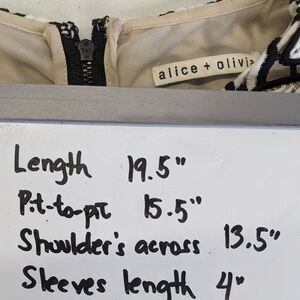 alice + olivia
Length 19.5"
Pit-to-pit 15.5"
Shoulder's across 13.5"
Sleeves length 4"